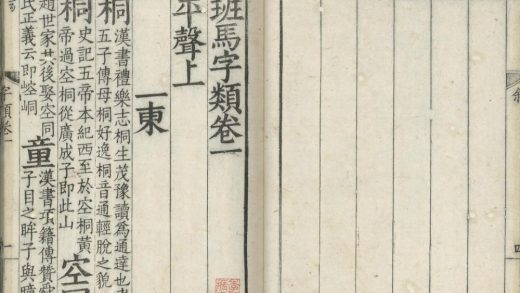 四
班馬字類卷一
平聲上
一東
桐漢書禮樂志桐生茂豫讀爲通達也
五子傳母桐好逸桐音通輕脫之貌
桐史記五帝本紀西至於空桐黃
帝過空桐從廣成子即此山
空
趙世家其後娶空同
氏正義云即崆峒
童漢書項籍傳贊
子目之眸子與
字類卷一
一